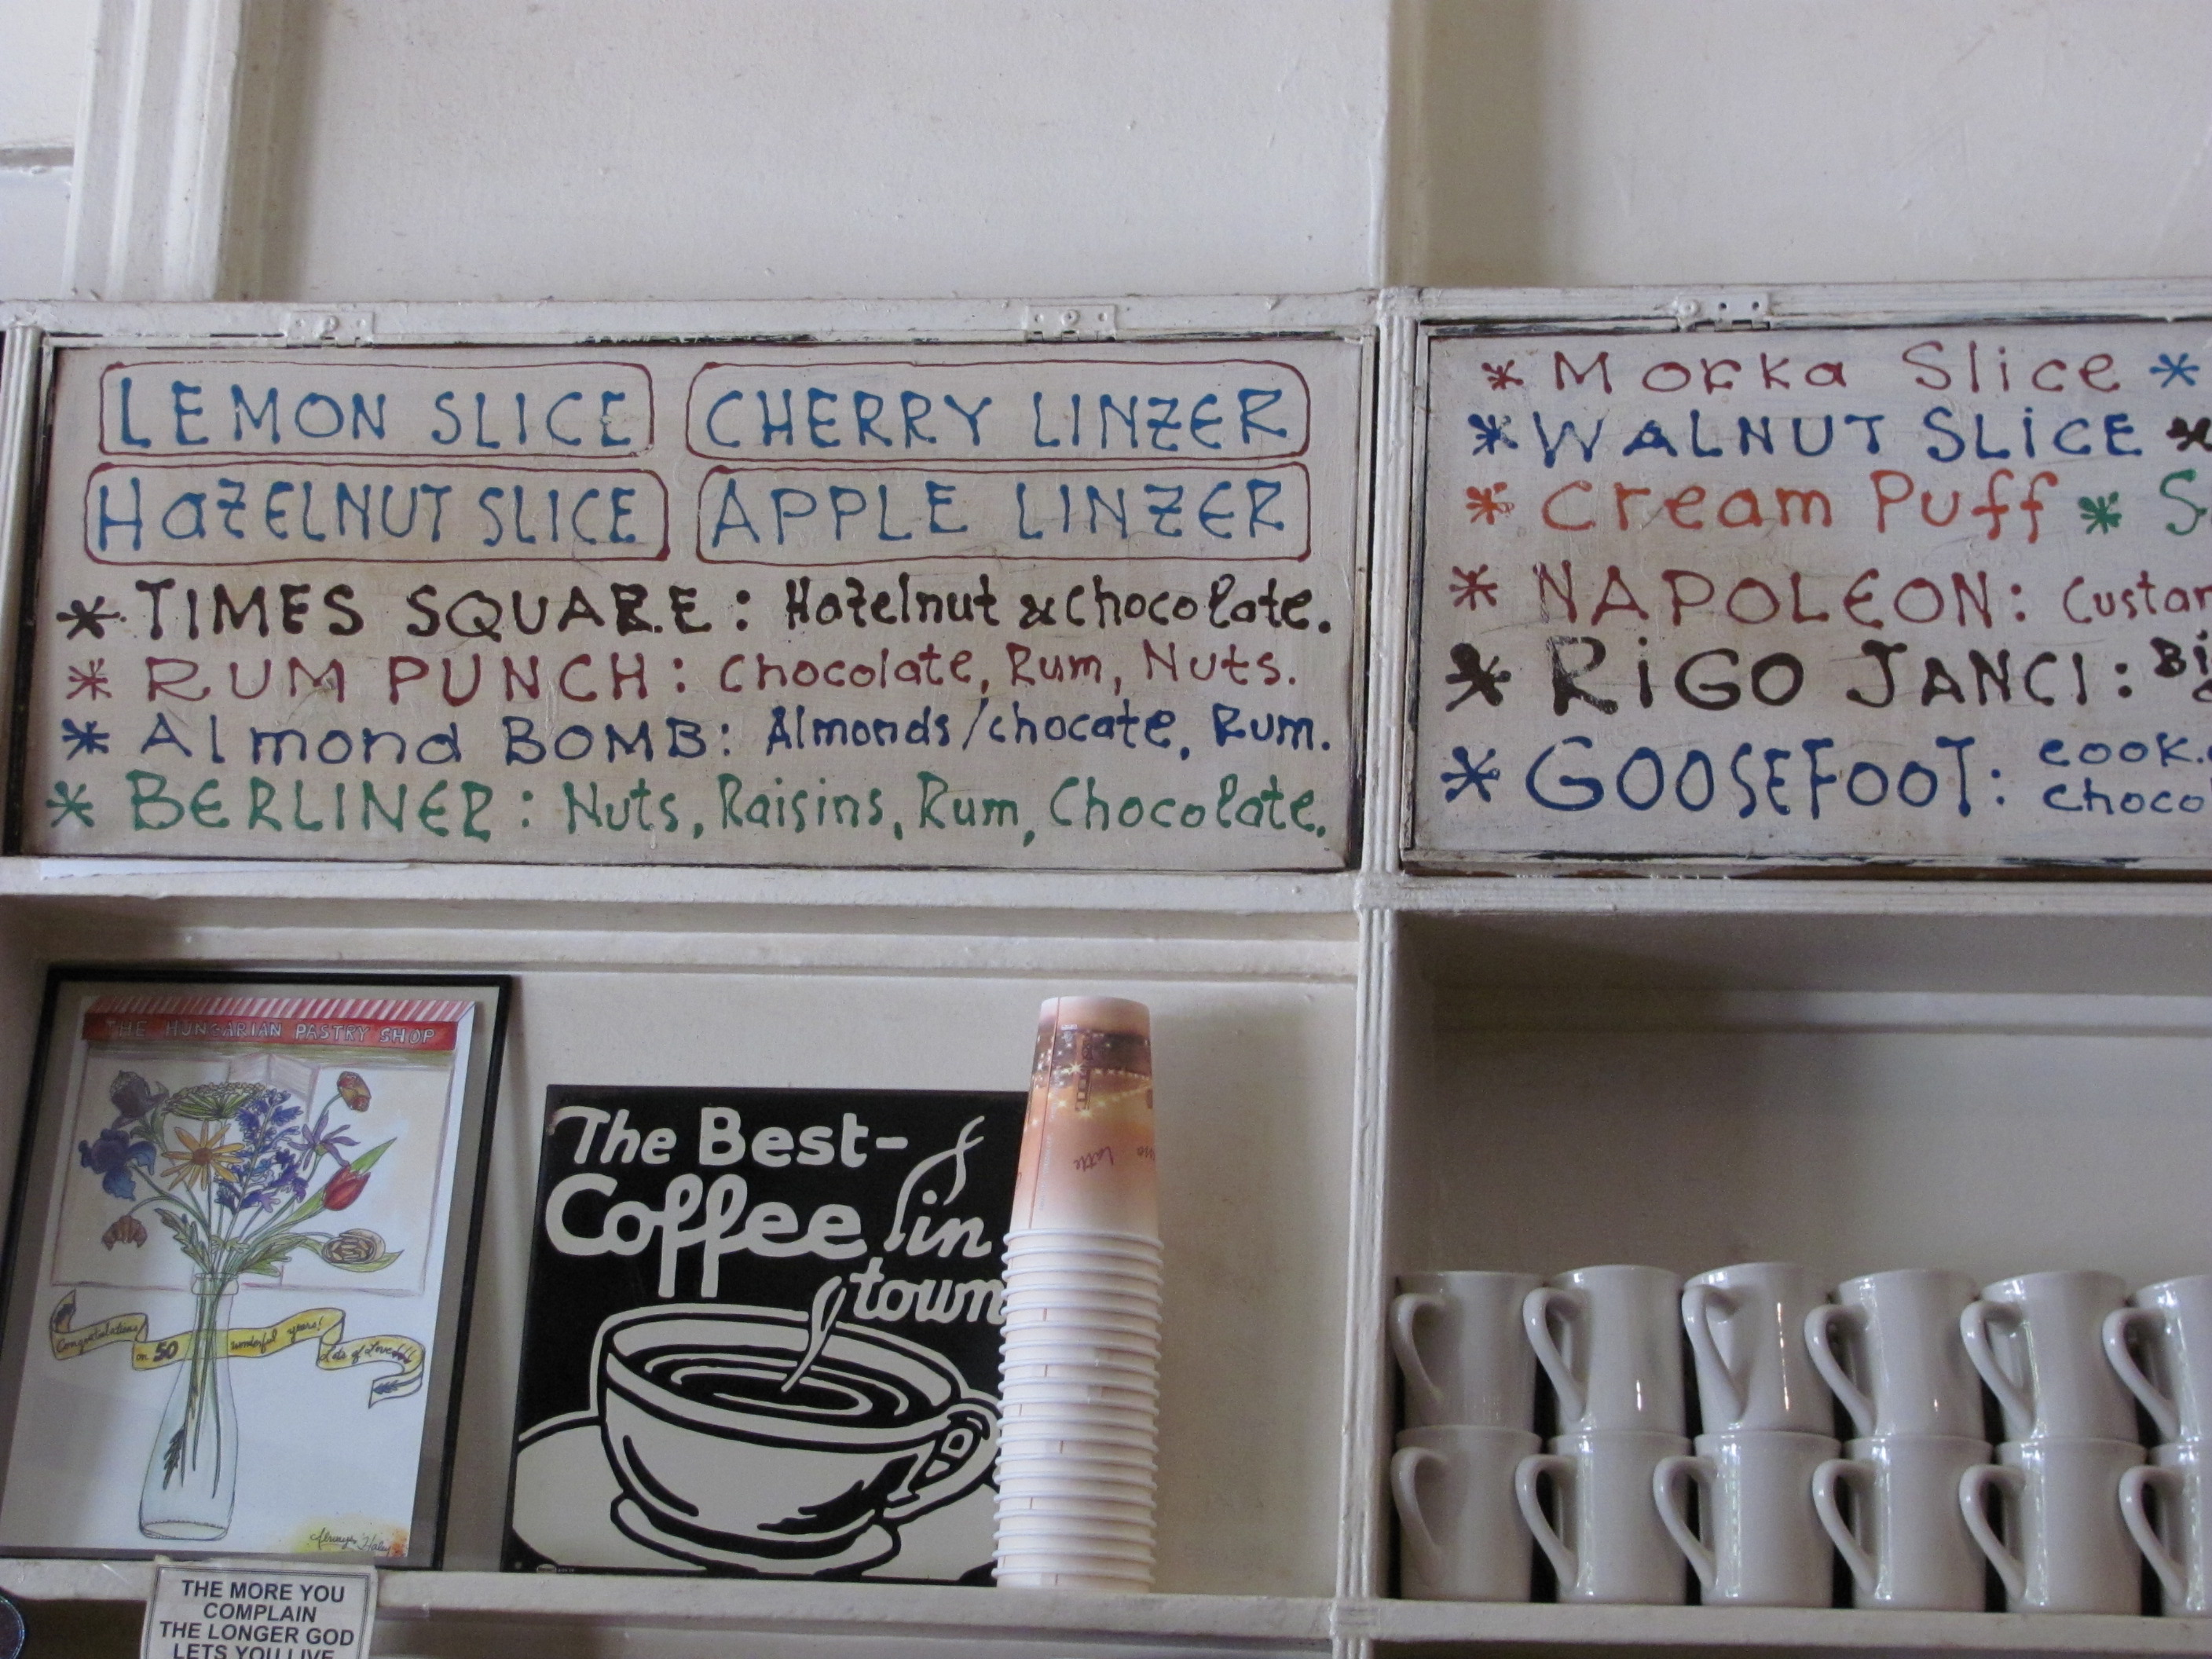 LEMON SLICE CHERRY LINZER
HaZELNUT SLICE APPLE LINZER
* TIMES SQUARE: Hazelnut & chocolate.
* RUM PUNCH: chocolate, Rum, Nuts.
* Almond BOMB: Almonds/chocate, Rum.
* BERLINER: Nuts, Raisins, Rum, Chocolate.
* Morka Slice *
* WALNUT SLiCE *
* Cream Puff * S
* NAPOLEON: Custar
* RiGO JANCI: Bi
* GOOSEFOOT: cook.
choco
THE HUNGARIAN PASTRY SHOP
Congratulations on 50 wonderful years!
Lots of Love
Always, Haley
The Best
Coffee in
town
Latte
THE MORE YOU
COMPLAIN
THE LONGER GOD
LETS YOU LIVE